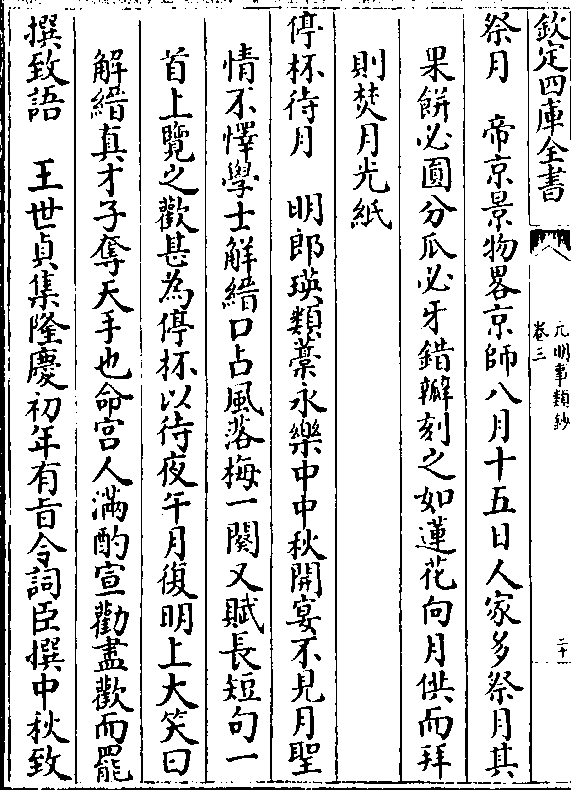 欽定四庫全書
元明事類鈔
卷三
二十
祭月　帝京景物畧京師八月十五日人家多祭月其
果餅必圓分瓜必牙錯瓣刻之如蓮花向月供而拜
則焚月光紙
停杯待月　明郎瑛類藁永樂中中秋開宴不見月聖
情不懌學士解縉口占風落梅一闋又賦長短句一
首上覽之歡甚為停杯以待夜午月復明上大笑曰
解縉真才子奪天手也命宮人滿酌宣勸盡歡而罷
撰致語　王世貞集隆慶初年有旨令詞臣撰中秋致